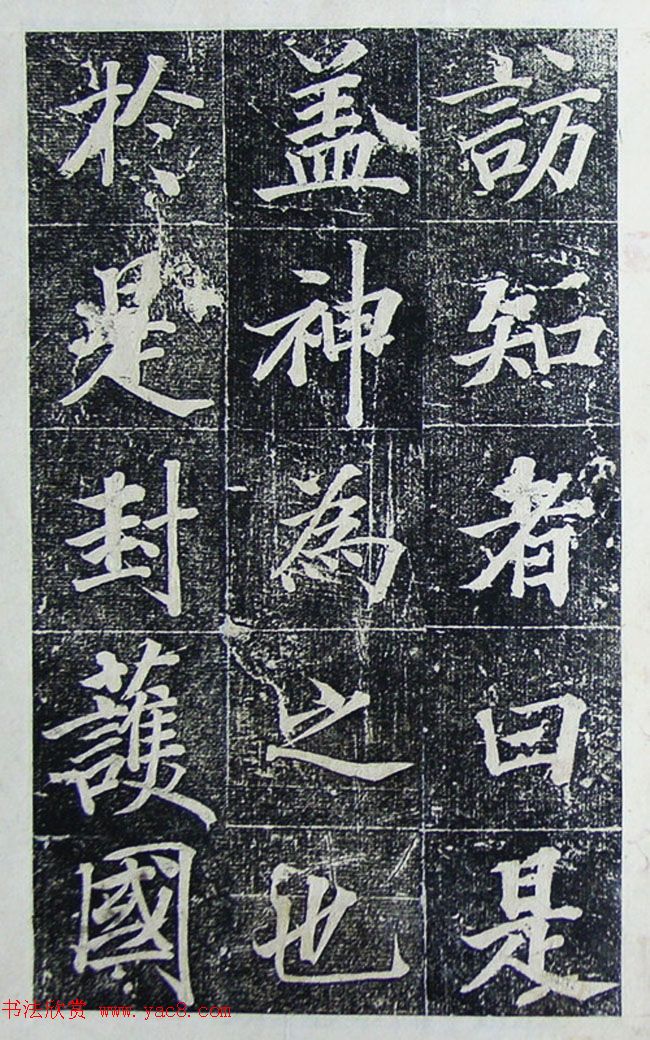 訪知者曰是
盖神為之也
於是封護國
书法欣赏 www.yac8.com